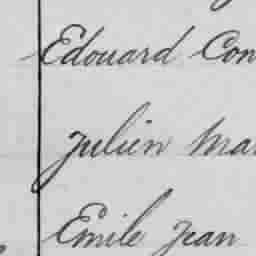 Edouard Con
Julien Ma
Emile Jean